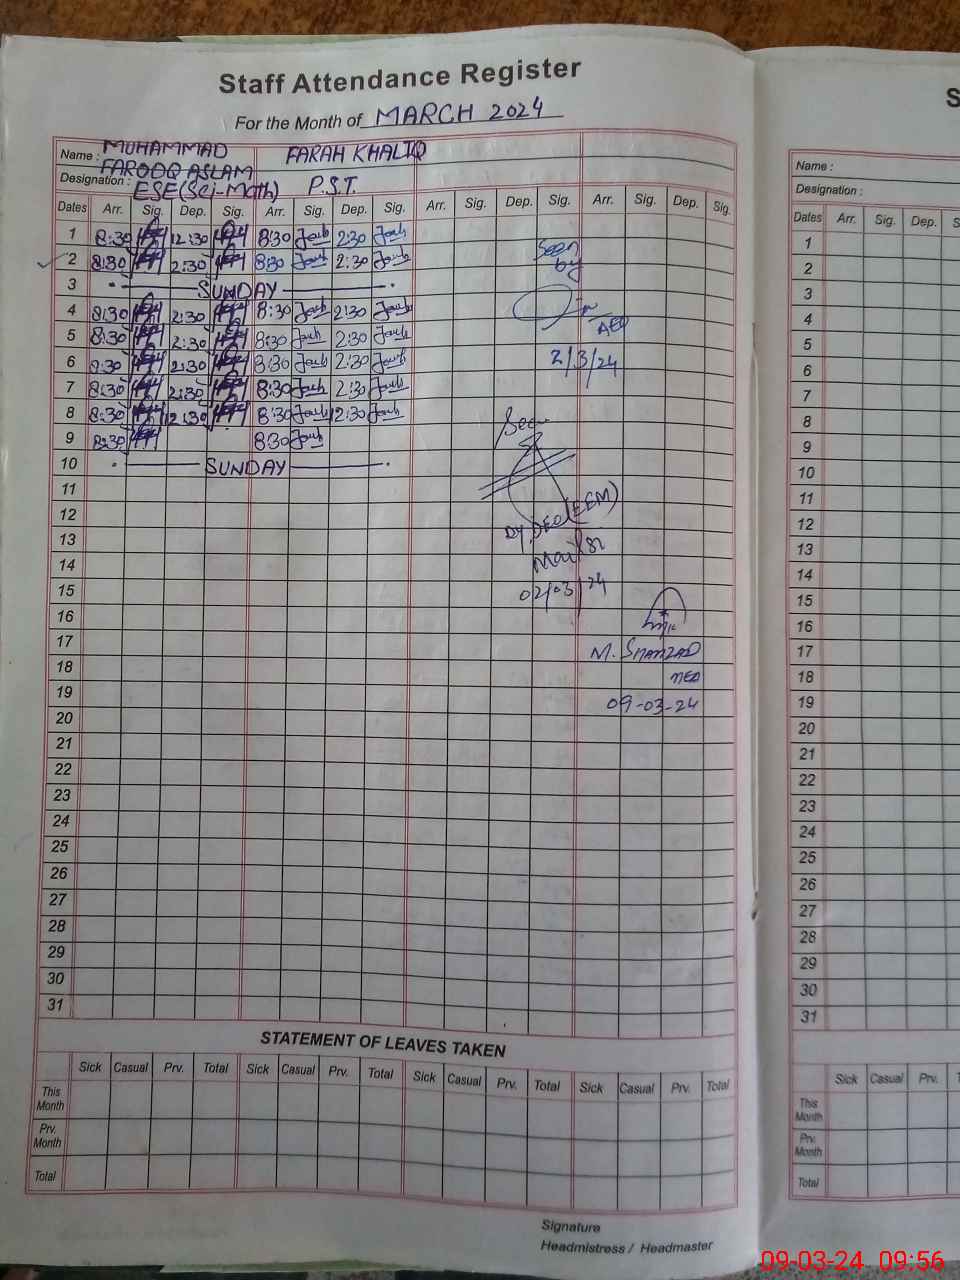 Staff Attendance Register
For the Month of MARCH 2024
Name : MUHAMMAD FAROOQ ASLAM FARAH KHALIQ
Designation : ESE(Sci-Math) P.S.T.
Dates Arr. Sig. Dep. Sig. Arr. Sig. Dep. Sig. Arr. Sig. Dep. Sig. Arr. Sig. Dep. Sig.
1 8:30 12:30 8:30 2:30
2 8:30 2:30 8:30 2:30
3 SUNDAY
4 8:30 2:30 8:30 2:30
5 8:30 2:30 8:30 2:30
6 8:30 2:30 8:30 2:30
7 8:30 2:30 8:30 2:30
8 8:30 12:30 8:30 12:30
9 8:30 8:30
10 SUNDAY
11
12
13
14
15
16
17
18
19
20
21
22
23
24
25
26
27
28
29
30
31
Seen
by
AEO
2/3/24
Seen
Dy. DEO (EEM)
02/03/24
M. SHAHZAD
09-03-24
STATEMENT OF LEAVES TAKEN
Sick Casual Prv. Total Sick Casual Prv. Total Sick Casual Prv. Total Sick Casual Prv. Total
This Month
Prv. Month
Total
Signature
Headmistress / Headmaster
S
Name :
Designation :
Dates Arr. Sig. Dep. Sig.
1
2
3
4
5
6
7
8
9
10
11
12
13
14
15
16
17
18
19
20
21
22
23
24
25
26
27
28
29
30
31
Sick Casual Prv.
This Month
Prv. Month
Total
09-03-24 09:56